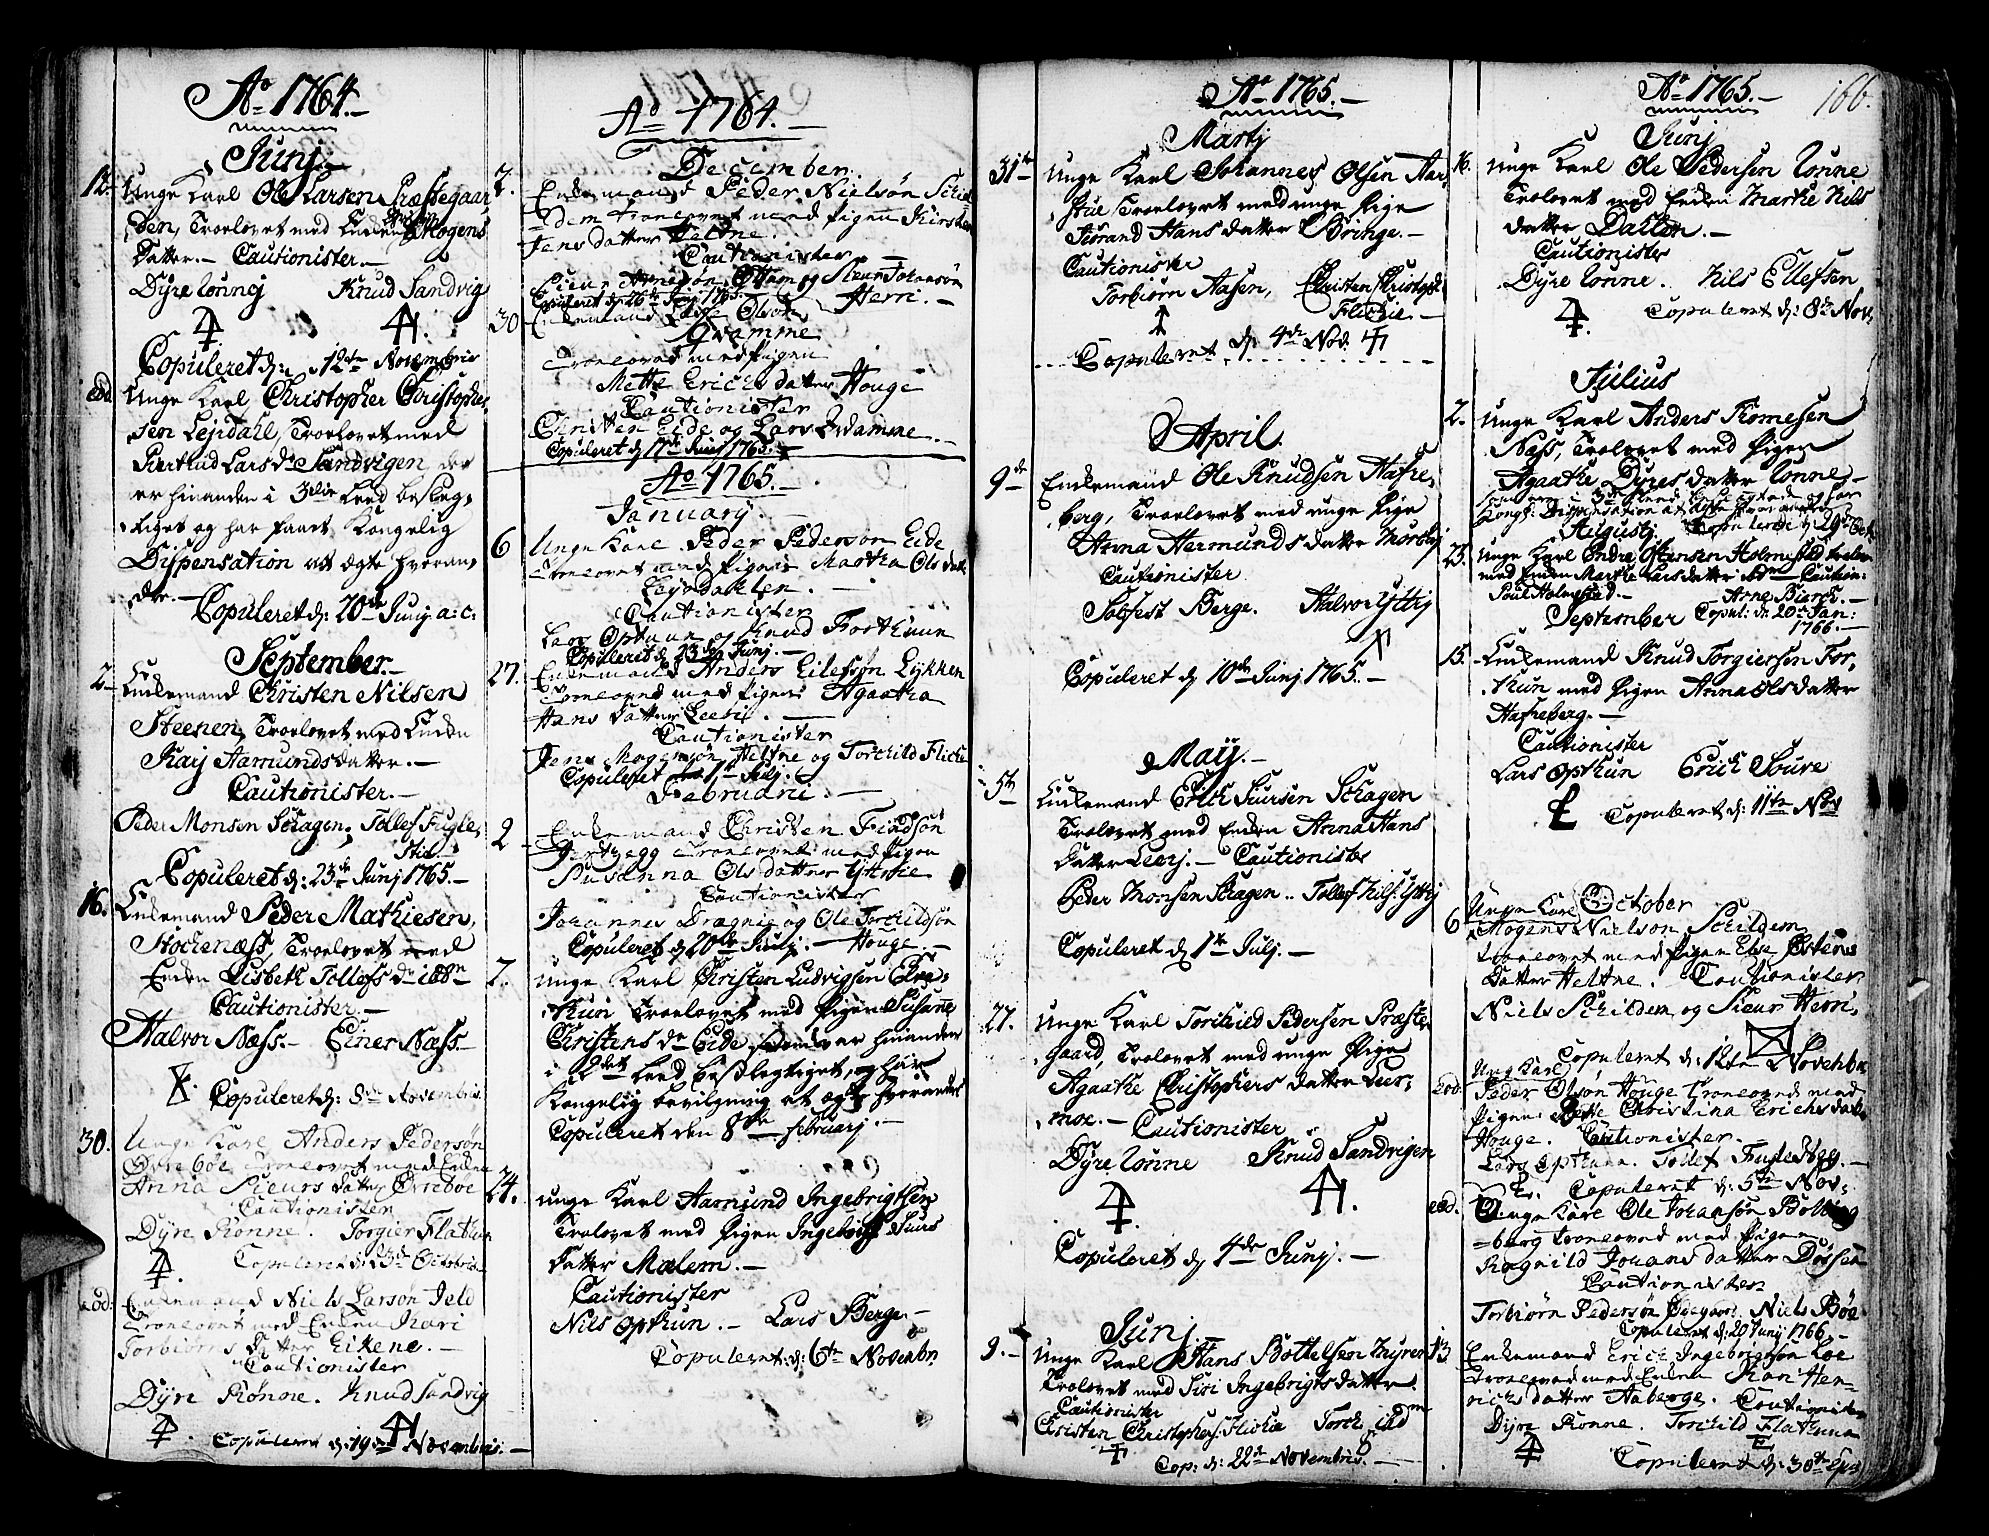 Ao 1764.
Junij
12. Unge Karl Ole Larsen Præstegaar,
den, Troelovet med Enken Mogens
Datter. Cautionister.
Dyre Lønnej Knud Sandvig
Copuleret d: 12te Novembris
eod. Unge Karl Christopher Christophe,
sen Lejrdahl, Troelovet med
Giertrud Lars dr Sandvigen, der
er hinanden i 3die Leed beslæg,
tiget og har faaet Kongelig
Dispensation at ægte hveran,
dre. Copuleret d: 20de Junij a: c:
September
2. Enkemand Christen Nilsen
Steenen, Troelovet med Enken
Kary Aamunds datter.
Cautionister.
Peder Monsen Schagen, Tollef Fugle,
Stie.
Copuleret d: 23de Junij 1765.
16. Enkemand Peder Mathiesen,
Stochenæss, Troelovet med
Enken Lisbeth Tollefs dr ibdm
Cautionister.
Halvor Næss. Einer Næss.
Copuleret d: 8de Novembris.
30. Unge Karl Anders Pedersøn
Øvrebøe troelovet med Enken
Anna Siurs datter Øvrebøe
Cautionister
Dyre Rønne. Torgier Flathun
Copuleret d: 23de Octobris
eod: Enkemand Niels Larsøn Jeld
Troelovet med Enken Kari
Torbiørns Datter Eikene.
Cautionister
Dyre Rønne. Knud Sandvig
Copuleret d: 19de Novembris.
Ao 1764.
December.
2. Enkemand Peder Nielsøn Schil
dem troelovet med pigen Kirsten
Jens datter Heltne.
Cautionister
Ottem og Siur Johansøn
Copuleret d: 26de Junij 1765. Herri.
30 Enkemand Lasse Olsøn
Qvamme
Troelovet med pigen
Mette Erichs datter Houge
Cautionister
Christen Eide og Lars Qvamme.
Copuleret d 17de Junij 1765.
Ao 1765.
January.
6 Unge Karl Peder Pedersøn Eide
troelovet med pigen Martha Ols datt
Leirdahlen.
Cautionister
Lars Optuun og Knud Forthuun
Copuleret d 23de Junij.
27. Enkemand Anders Eilefsøn Lykken
troelovet med pigen Agaatha
Hans datter Leeri.
Cautionister
Jens Mogensøn Heltne og Torchild Fliche
Copuleret 1te Julj.
Februarii.
2 Enkemand Christen Findsøn
troelovet med pigen
Susanna Ols datter Ytrie
Cautionister
Johannes Drægnie og Ole Torchildsøn
Copuleret d 20de Julj. Houge.
7. Unge Karl Christen Ludvigsen
Troelovet med Pigen Susanne
Christens dr Eide, som er hinanden
i 2det Leed besslegtiget, og har
Kongelig bevilgning at ægte hverandre
Copuleret den 8de februarj.
24. unge Karl Aamund Ingebrigtsen
Trolovet med Pigen Ingebor Siurs
Datter Mælem.
Cautionister
Nils Opthun. Lars Berge.
Copuleret d: 6te Novembr.
Ao 1765.
Martij
31te Unge Karl Johannes Olsen Aar,
Troelovet med unge Pige
Jørand Hans datter Bringe.
Cautionister
Torbiørn Aasen, Christen Christophs
Flichie.
Copuleret d 4de Nov.
April.
9de Enkemand Ole Knudsen Hafre,
berg, Troelovet med unge Pige
Anna Hermunds datter Mørkrj
Cautionister
Solfest Berge. Halvor Yttrij
Copuleret d 10de Junij 1765.
Maij.
5te Enkemand Erich Siursen Schagen
Trolovet med Enken Anna Hans
Datter Leerj. Cautionister
Peder Monsen Skagen. Tollef Nils: Yttrij
Copuleret d 1te Julj.
27. Unge Karl Torchild Pedersen Præste,
gaard, Trolovet med unge Pige
Agaathe Christophers datter Leer,
moe. Cautionister
Dyre Lønne Knud Sandvigen
Copuleret d 4de Junij.
Junij.
9. Unge Karl Hans Bottelsen
Trolovet med Siri Ingebrigts datter
Cautionister
Christen Christophers: Flichie Torch: ibdm
Cop: d: 22de Novembris.
Ao 1765. 166.
Junij
16. Unge Karl Ole Pedersen Lønne
Trolovet med Enken Marthe Nils
datter Dalen.
Cautionister
Dyre Lønne. Nils Ellefsen
Copuleret d: 8de Nov.
Julius
2. Unge Karl Anders Tomesen
Næss, Trolovet med Pigen
Agaathe Dyres datter Lønne
som ere i 3die Leed beslegted og har
Kongl: Dispensation at ægte hverandre
Augustij Copulerede d 29de Oct:
25. Unge Karl Endre Hansen Holmestad trolov
med Enken Marthe Lars datter ibdm Caution:
Poul Holmestad. Arne Biørch.
September Copul: d: 20de Jan:
1766.
15. Enkemand Knud Torgiersen For,
thun med Pigen Anna Ols datter
Hafreberg.
Cautionister
Lars Opthun Erich Soure
Copuleret d: 11te Nov
October
6 Unge Karl
Mogens Nielsøn Schildem
troelovet med Pigen Else Østens
Datter Heltne. Cautionister
Niels Schildem og Siur Herri,
Copuleret d: 12te Novembr.
eod. Unge Karl
Peder Olsøn Houge troelovet med
Pigen Christina Erichs datt
Houge. Cautionister.
Lars Opthuun. Tollef Fuglesteg.
Copuleret d: 5te Nov:
eod. Unge Karl Ole Johansøn Bolting
berg troelovet med Pigen
Ragnild Johans datter Døssen
Cautionister
Torbiørn Pedersøn Ødegaard, Niels Bøe
Copuleret d: 20 Junij 1766.
13. Enkemand Erich Ingebrigtsøn Loe
Troelovet med Enken Kari Hen-
richs datter Aaberge. Cautionister
Dyre Rønne. Torchild Flathuun
Copuleret d: 30te